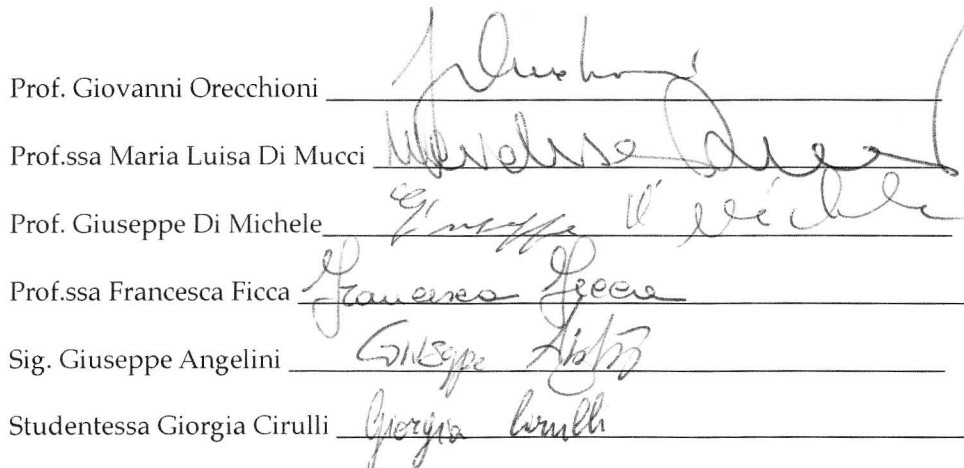 Prof. Giovanni Orecchioni
Prof.ssa Maria Luisa Di Mucci
Prof. Giuseppe Di Michele Giuseppe Di Michele
Prof.ssa Francesca Ficca Francesca Ficca
Sig. Giuseppe Angelini Giuseppe
Studentessa Giorgia Cirulli Giorgia Cirulli